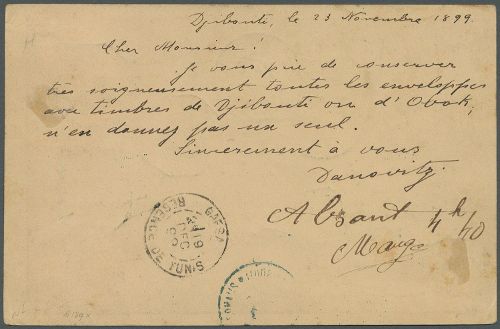 Djibouti, le 23 Novembre 1899.
Cher Monsieur!
Je vous prie de conserver
très soigneusement toutes les enveloppes
avec timbres de Djibouti ou d'Obok,
n'en donnez pas un seul.
Sincèrement à vous
Danovitz
Absent 4h40
GAFSA
RÉGENCE DE TUNIS